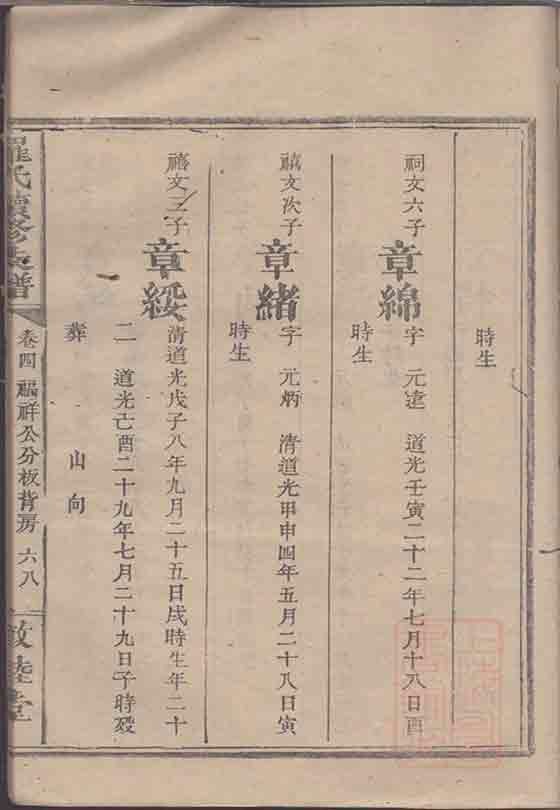 時生
祠文六子
章綿 字 元逵 道光壬寅二十二年七月十八日酉
時生
禧文次子
章緒 字 元炳 清道光甲申四年五月二十八日寅
時生
禧文三子
章綏 清道光戊子八年九月二十五日戌時生年二十
二 道光己酉二十九年七月二十九日子時歿
葬 山向
羅氏續修支譜
卷四 福祥公分板背房 六八
敦睦堂